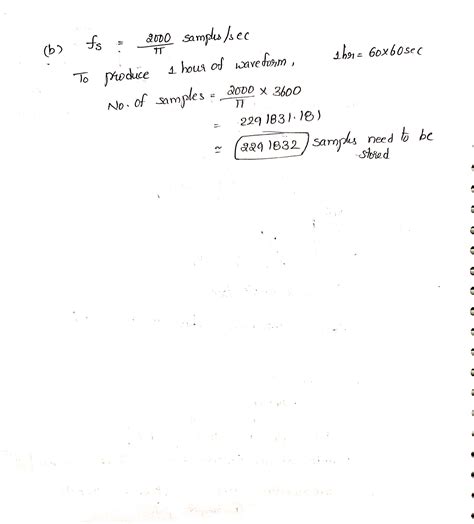 (b) fs = 2000/π samples/sec
To produce 1 hour of waveform, 1hr = 60x60sec
No. of samples = 2000/π x 3600
= 2291831.181
≈ 2291832 samples need to be
stored